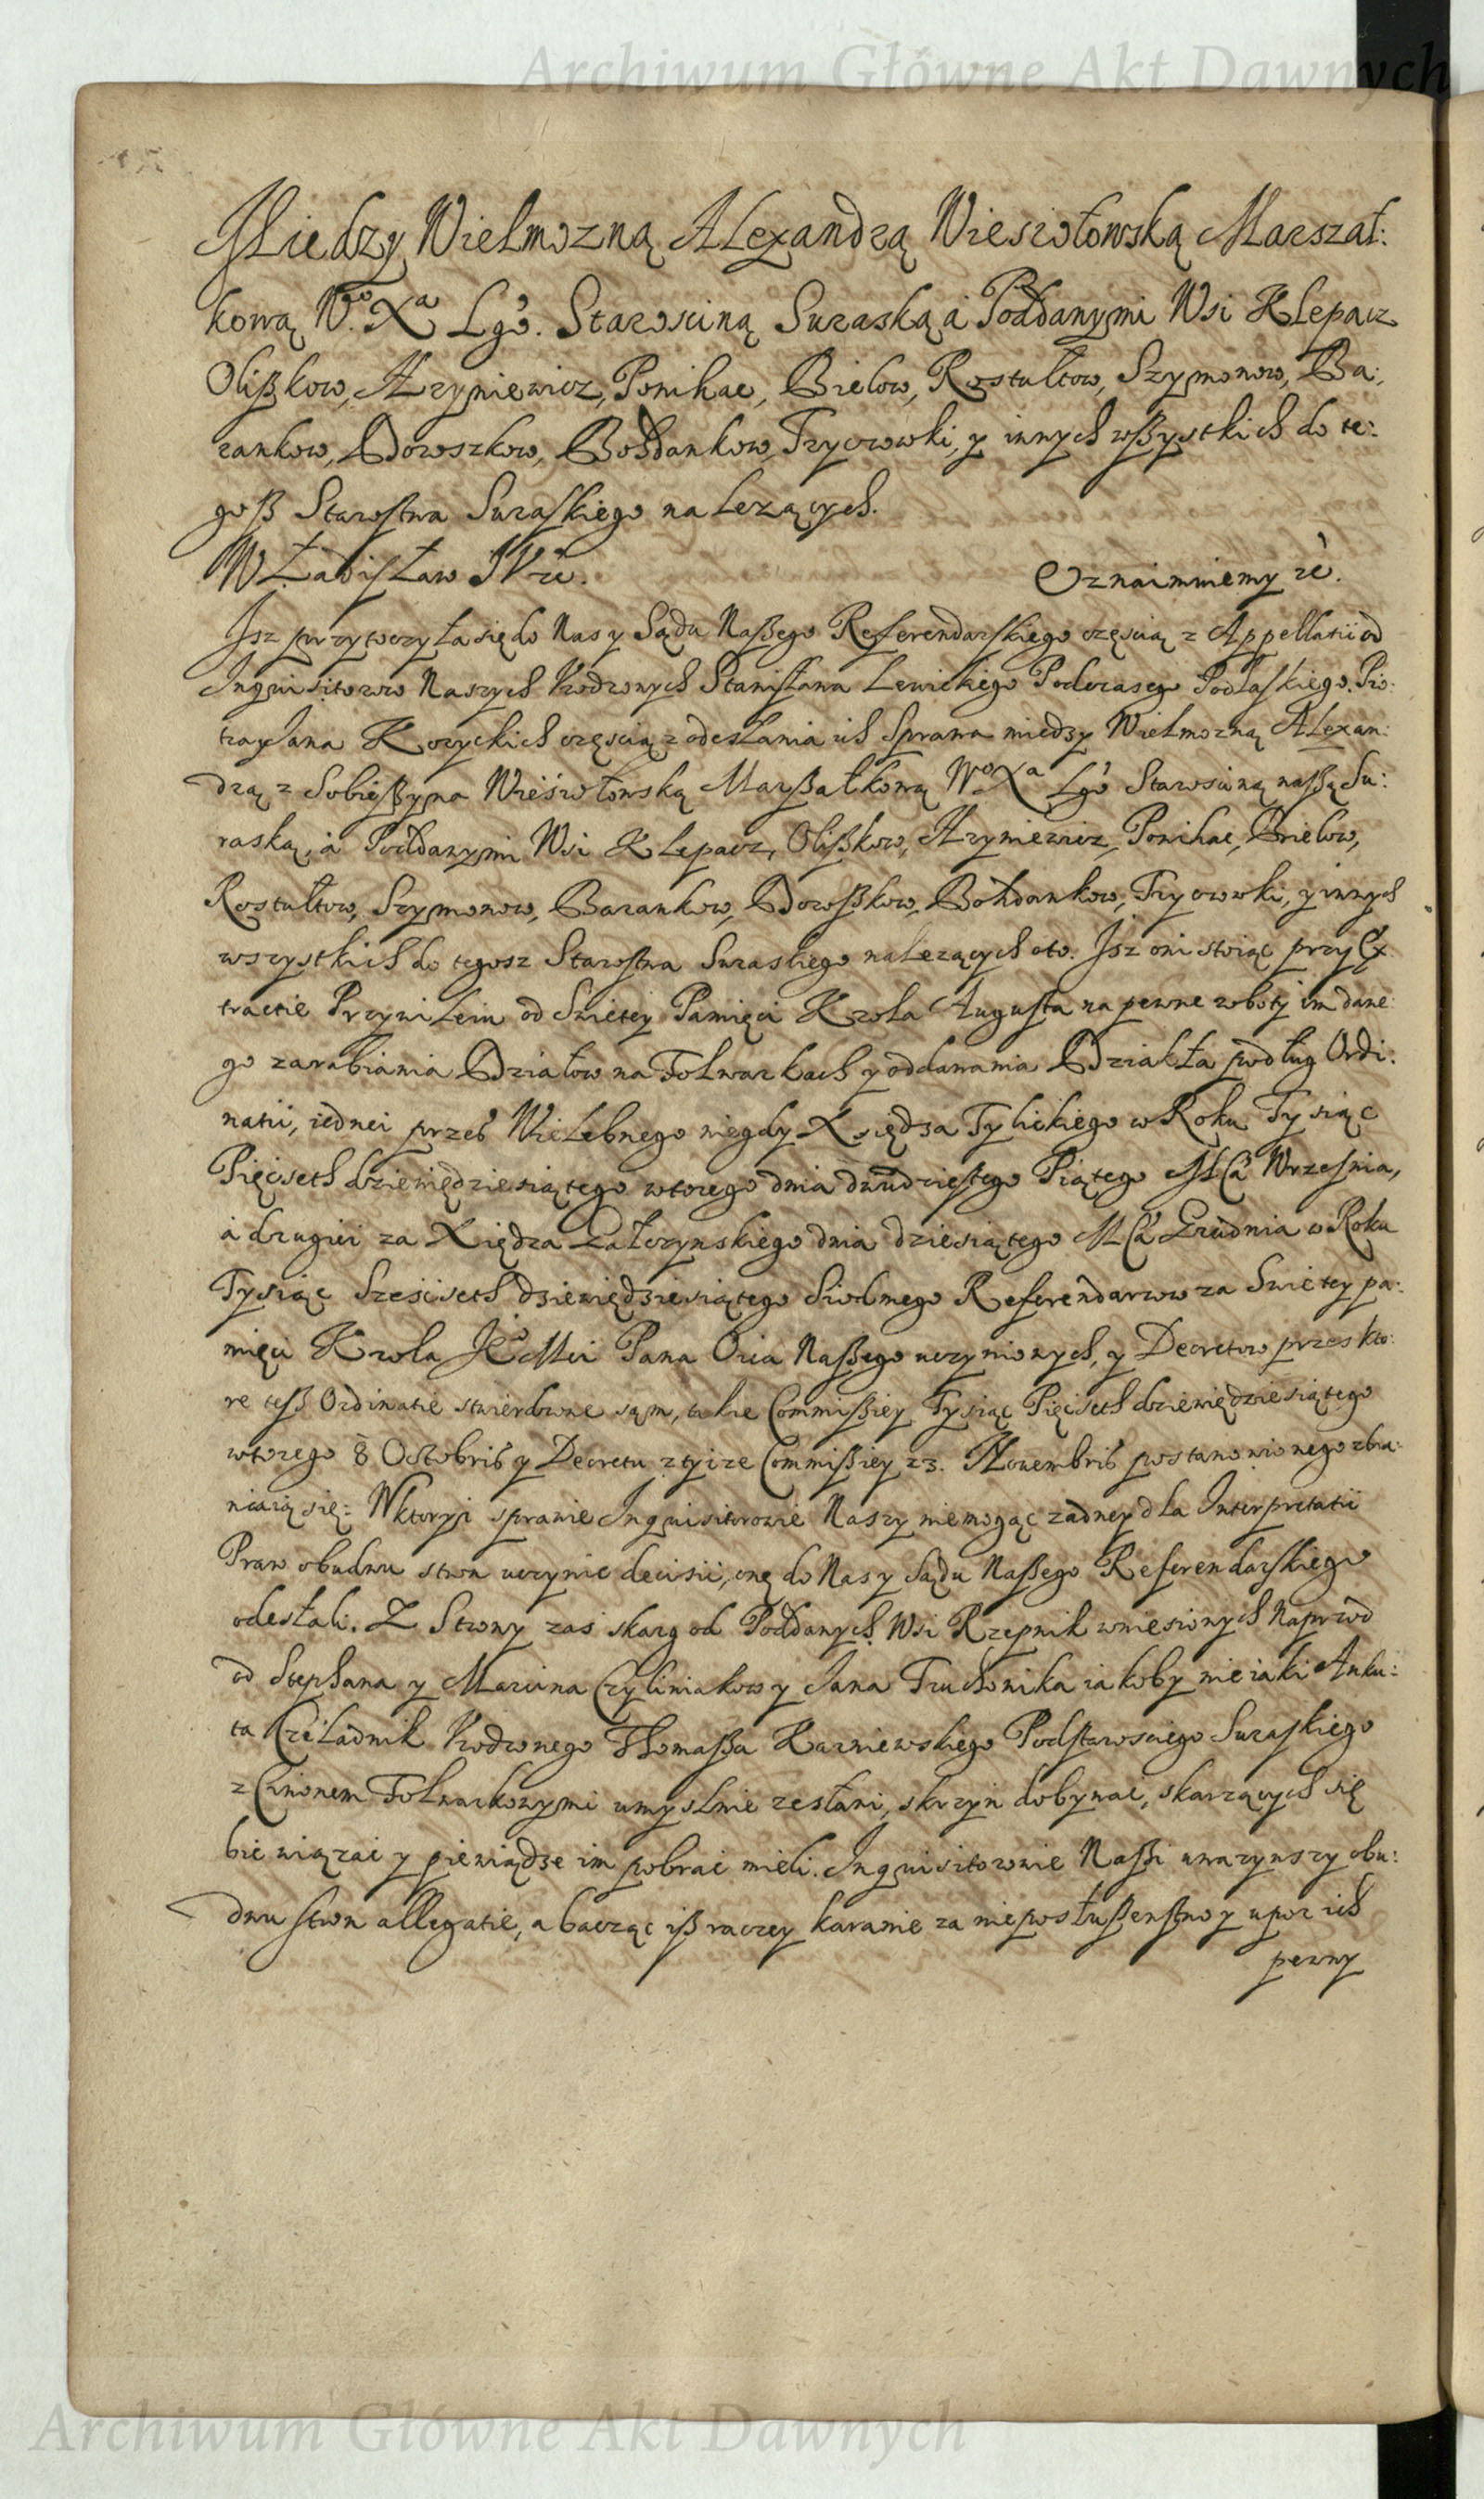 Archiwum Główne Akt Dawnych
Miedzy Wielmozną Alexandrą Wiesiołowską Marszał:
kową W.º Xª Lgº. Starosciną Suraską a Poddanymi Wsi Klepacz
Olißkow, Hryniewicz, Ponikac, Bielow, Rostułtow, Szymonow, Ba:
rankow, Doroszkow, Bohdankow, Tryczowki, y innych wßystkich do te:
goß Starostwa Suraskiego nalezących.
Władisław IV etc. Oznaimuiemy etc.
Isz przytoczyła się do Nas y Sądu Naßego Referendarskiego częscią z Appellatii od
Inquisitorow Naszych Urodzonych Stanisława Lewickiego Podczasego Podlaskiego. Pio:
tra y Jana Korzyckich częscią z odesłania ich Sprawa miedzy Wielmozną Alexan:
drą z Sobießyna Wieśiołowską Marßałkową Wº Xª Lgº Starosciną naßą Su:
raską, a Poddanymi Wsi Klepacz, Olißkow, Hryniewicz, Ponikac, Bielow,
Rostułtow, Szymonow, Barankow, Doroßkow, Bohdankow, Tryczowki, y innych
wszystkich do tegosz Starostwa Suraskiego nalezących oto. Isz oni stoiąc przy Ex
tractie Przywileiu od Swietey Pamięci Krola Augusta na pewne roboty im dane
go zarabiania Działow na Folwarkach y oddawania Dziakła podług Ordi:
natii, iednei przes Wielebnego niegdy Xiędza Tylickiego w Roku Tysiąc
Pięcseth dziewiędziesiątego wtorego dnia dwudziestego Piątego Mca Wrzesnia,
a drugiei za Xiędza Łatczynskiego dnia dziesiątego Mca Grudnia w Roku
Tysiąc Szescseth dziewiędziesiątego Siodmego Referendarzow za Swietey pa:
mięci Krola Jº Mci Pana Oica Naßego uczynionych, y Decretow przes kto:
re teß Ordinatie stwierdzone są m, takze Commißiey Tysiąc Pięcseth dziewiędziesiątego
wtorego 8 Octobris y Decretu z tyize Commißiey 23. Nouembris postanowionego zbra:
niaią się: W ktoryi sprawie Inquisitorowie Naszy niemogąc zadney dla Interpretatii
Praw obudwu stron uczynic decisii, onę do Nas y Sądu Naßego Referendarskiego
odesłali. Z Strony zas skarg od Poddanych Wsi Rzepnik wniesionych Naprzod
od Stephana y Marcina Czyliniakow y Jana Truchonika iakoby nieiaki Anku:
ta Czeladnik Urodzonego Thomaßa Karniewskiego Podstarosciego Suraskiego
z Cimonem Folwarkowymi umyslnie zesłani, skrzyn dobywac, skarzących się
bic wiązac y pieniądze im pobrac mieli. Inquisitorowie Naßi uwazywszy obu:
dwu stron allegatie, a bacząc iß raczey karanie za nieposłußenstwo y upor ich
pewny
Archiwum Główne Akt Dawnych